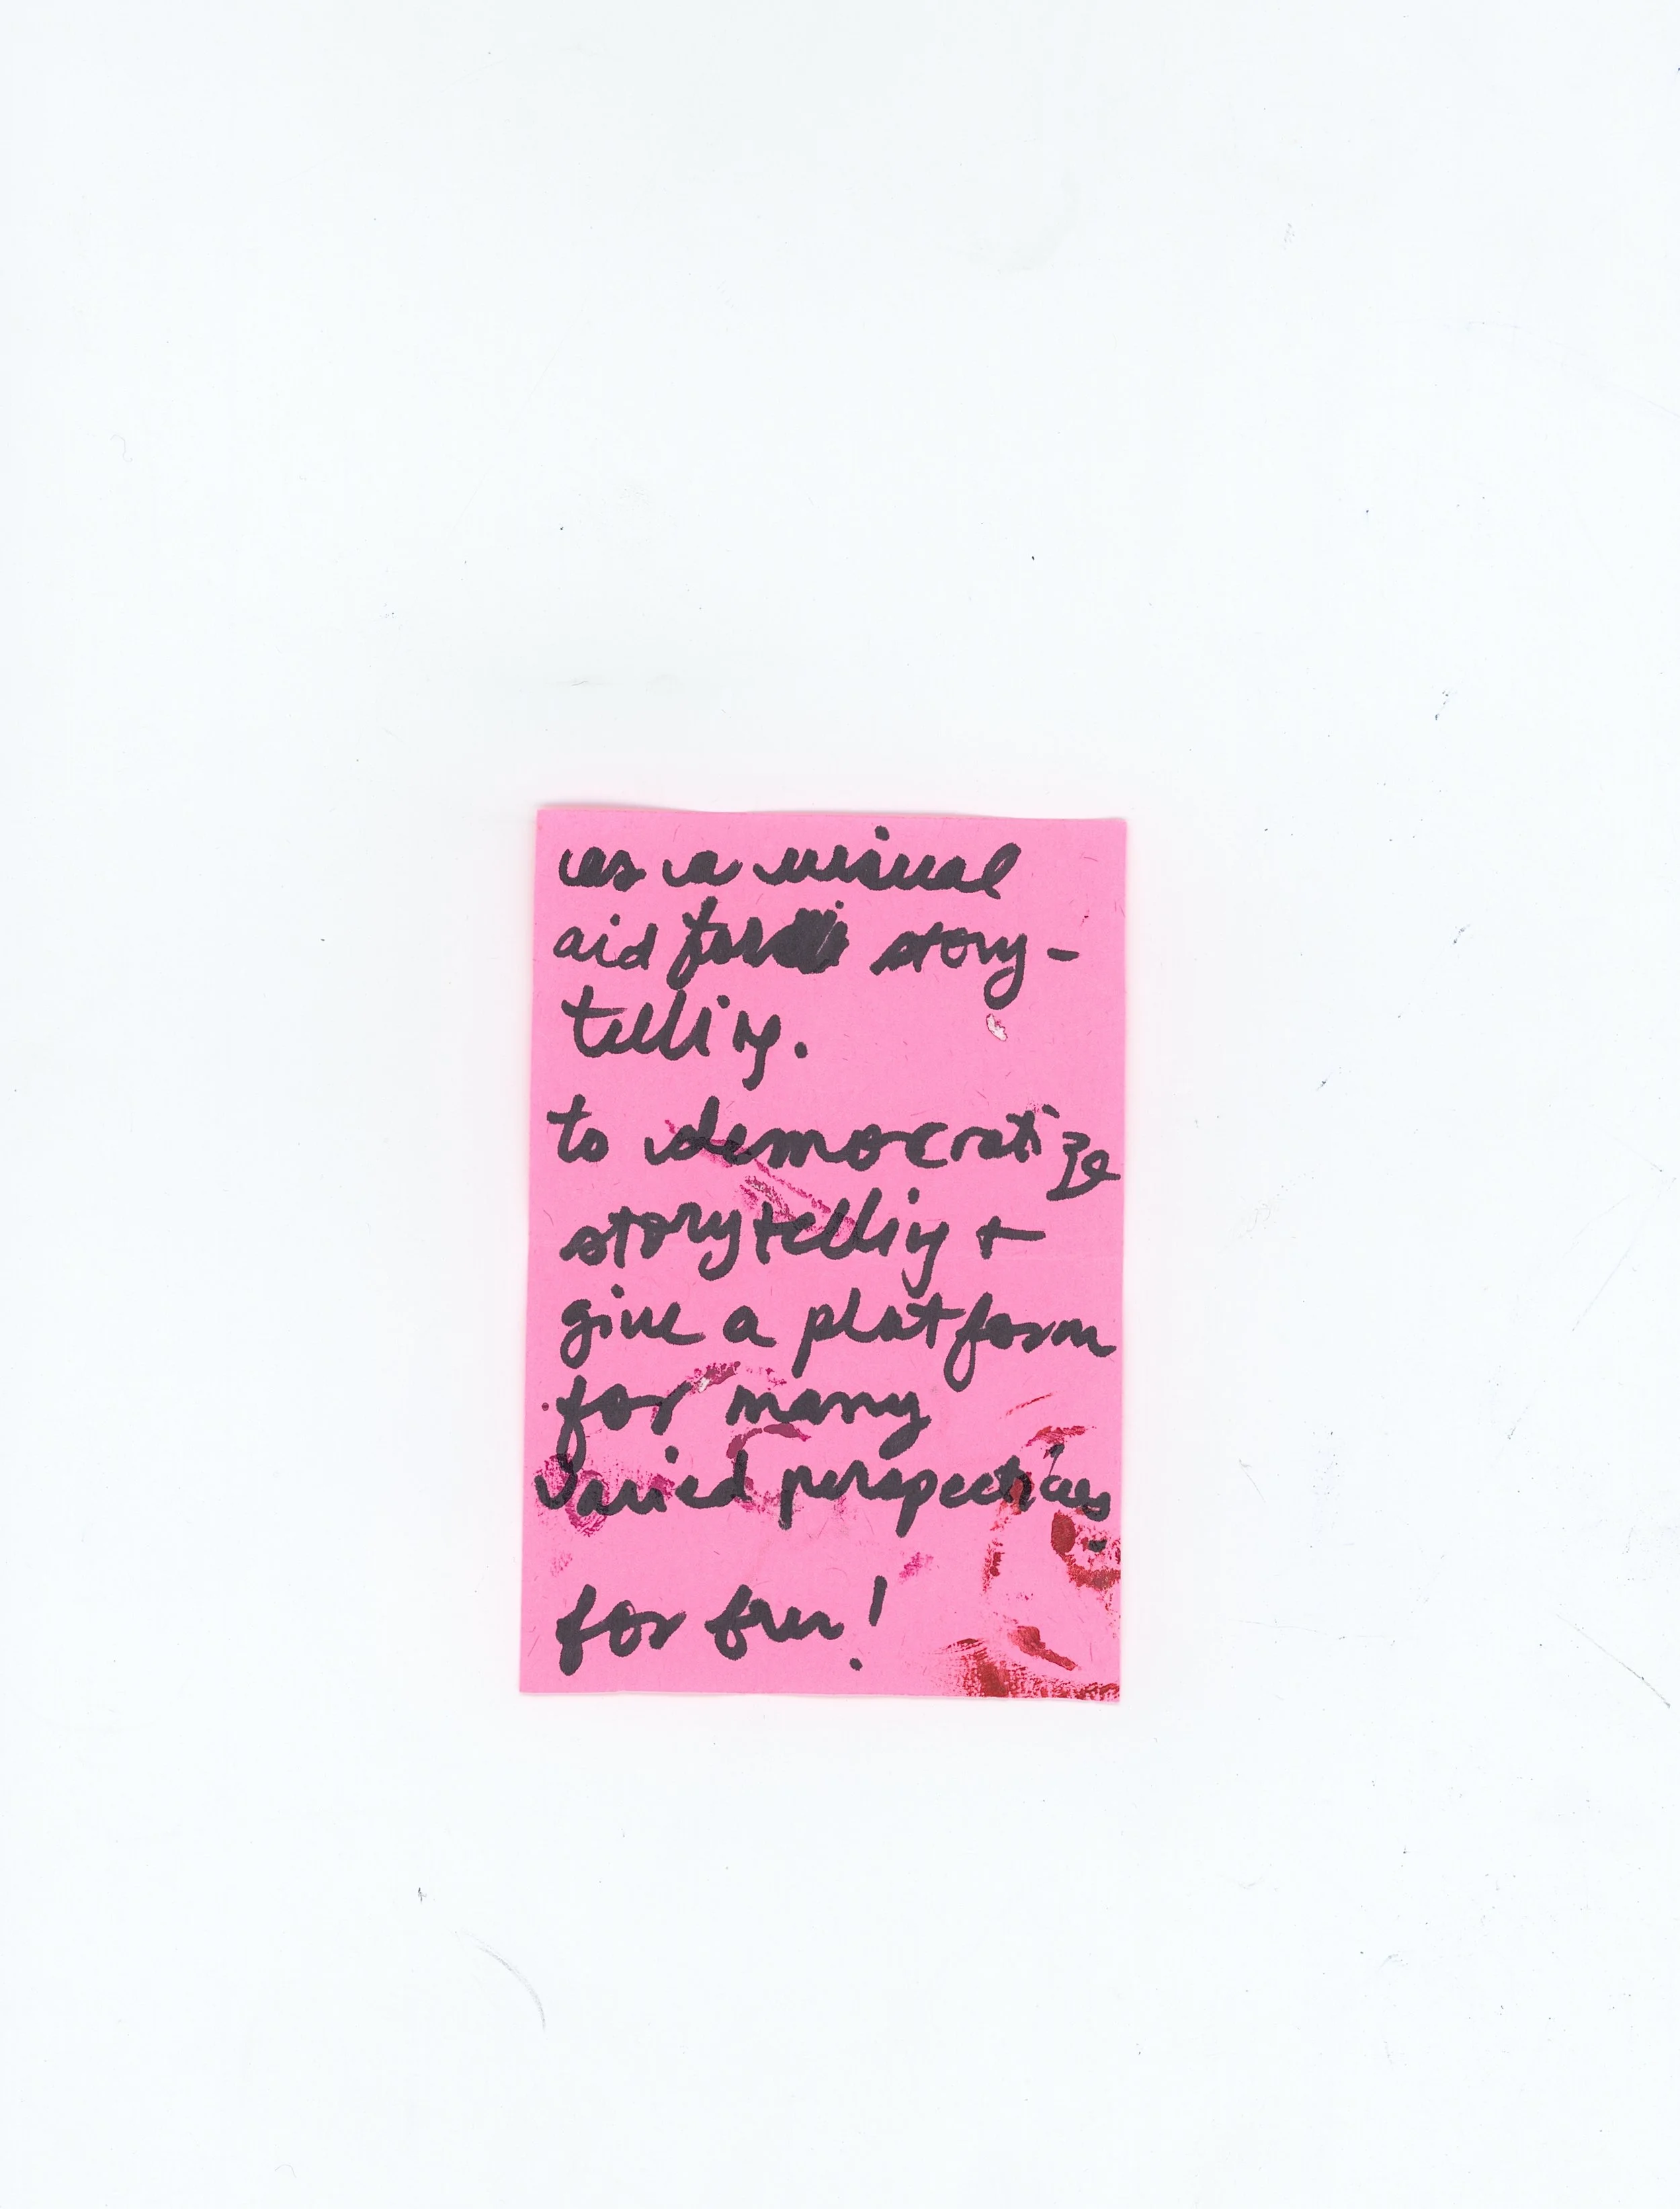 as a visual
aid for story-
telling.
to democratize
storytelling +
give a platform
for many
varied perspectives.
for fun!